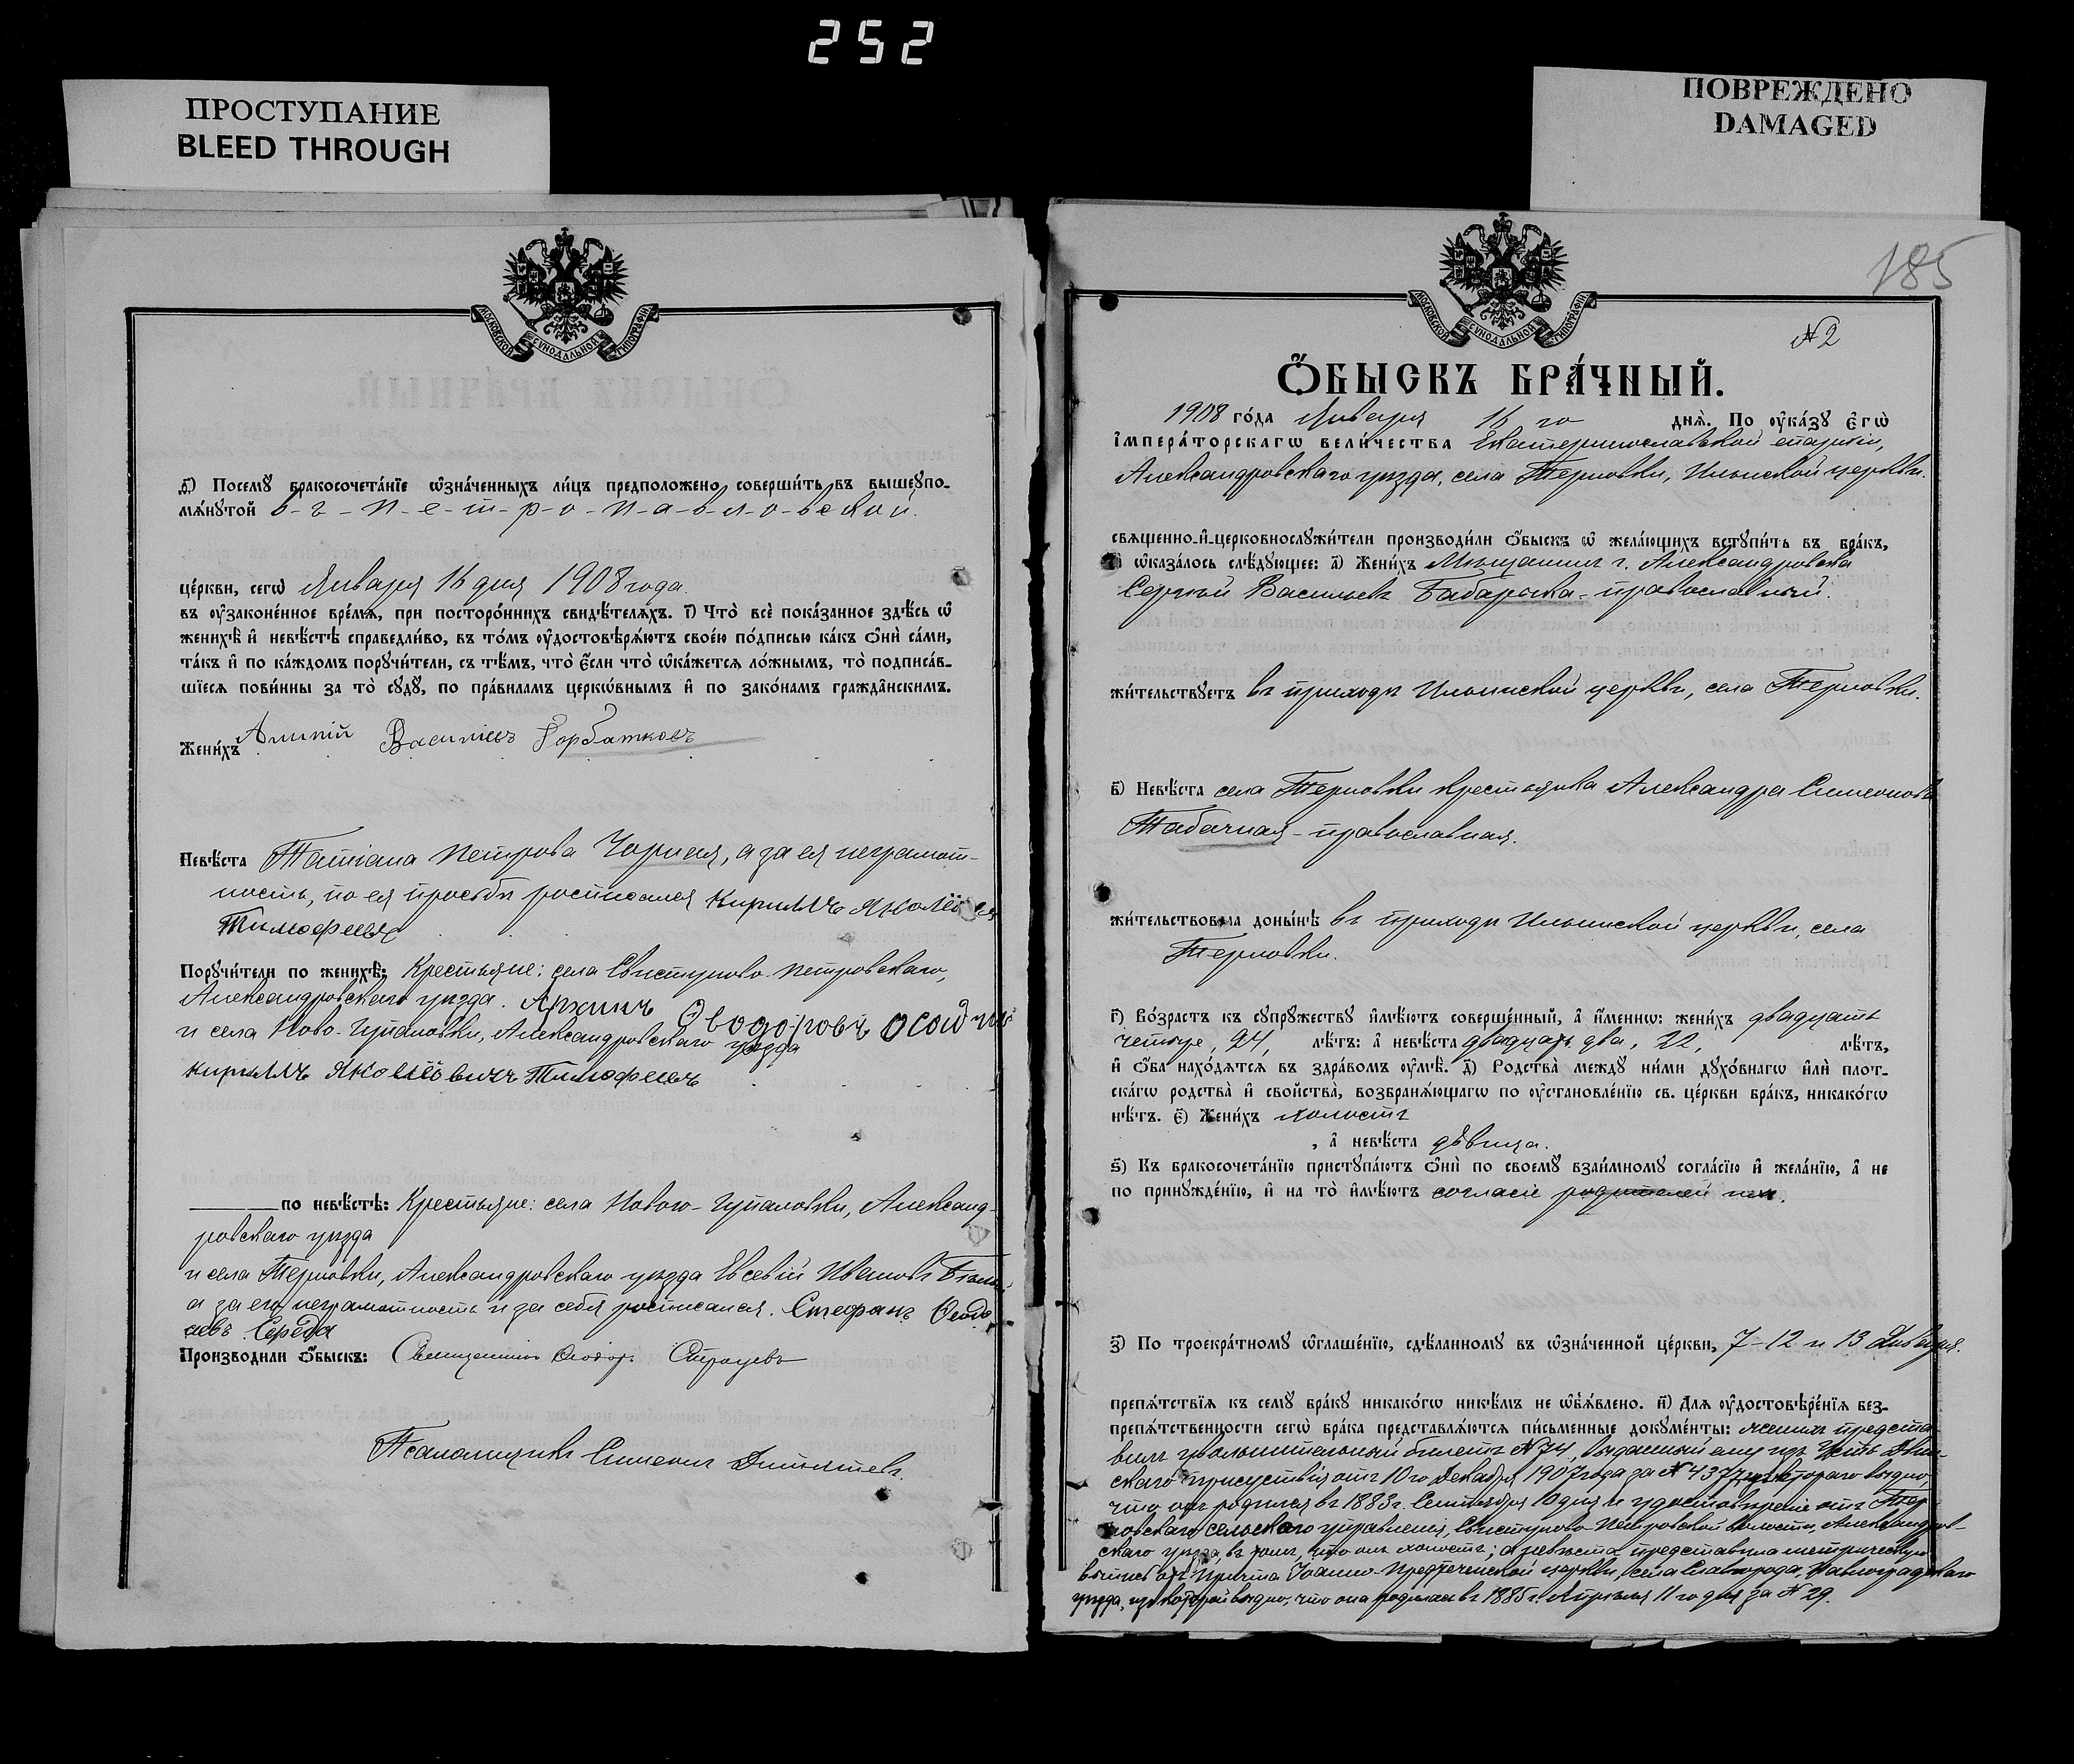 252
ПРОСТУПАНИЕ
BLEED THROUGH
ПОВРЕЖДЕНО
DAMAGED
МОСКОВСКОЙ СѴНОДАЛЬНОЙ ТИПОГРАФІИ
и҃) Посемꙋ бракосочета́нїе ѡ҆зна́ченныхъ ли́цъ предположено совершить въ вышеꙋпо-
мѧ́нꙋтой в-ъ - П-е-т-р-о-П-а-в-л-о-вской.
це́ркви, сегѡ̀ Января 16 дня 1908 года.
въ ᲂу҆законе́нное вре́мѧ, при посторо́ннихъ свидѣ́телѧхъ. і҃) Что̀ всѐ пока́занное здѣ́сь ѡ҆
женихѣ̀ и҆ невѣ́стѣ справедли́во, въ то́мъ ᲂу҆достовѣрѧ́ютъ свое́ю по́дписью ка́къ ѻ҆нѝ са́ми,
та́къ и҆ по ка́ждомъ порꙋчи́тели, съ тѣ́мъ, что̀ є҆́сли что̀ ѡ҆ка́жетсѧ ло́жнымъ, то̀ подписа́в-
шїесѧ пови́нны за то̀ сꙋдꙋ̀, по пра́виламъ церкѡ́внымъ и҆ по зако́намъ гражда̂нскимъ.
Жени́хъ Алипій Василіевъ Горбатковъ
Невѣ́ста Татіана Петрова Чорная, а за ея неграмот-
ность, по ея просьбѣ росписался Кириллъ
Тимофеевъ
Порꙋчи́тели по женихѣ̀: Крестьяне: села Свистуново-Петровскаго,
Александровскаго уѣзда. Архипъ
и села Ново-Гупаловки, Александровскаго уѣзда
Кириллъ Тимофеевъ
по невѣ́стѣ: Крестьяне: села Ново-Гупаловки, Александ-
ровскаго уѣзда
и села Терновки, Александровскаго уѣзда Евсевій Ивановъ
а за его неграмотность и за себя росписался. Стефанъ
Середа
Производили ѻ҆́быскъ: Священникъ Ѳеодоръ
Псаломщикъ Симеонъ
185
МОСКОВСКОЙ СѴНОДАЛЬНОЙ ТИПОГРАФІИ
№ 2
Ѻ҆́БЫСКЪ БРА́ЧНЫЙ.
1908 го́да Января 16 го днѧ̀. По ᲂу҆ка́зꙋ є҆гѡ̀
і҆мпера́торскагѡ вели́чества Екатеринославской епархіи,
Александровскаго уѣзда, села Терновки, Ильинской церкви.
свѧщенно-и҆-церковнослꙋжи́тели производи́ли ѻ҆́быскъ ѡ҆ жела́ющихъ встꙋпи́ть въ бра́къ,
и҆ ѡ҆каза́лось слѣ́дꙋющее: а҃) Жени́хъ Мѣщанинъ г. Александровска
Сергѣй Васильевъ Бабарыка - православный.
жи́тельствꙋетъ въ приходѣ Ильинской церкви, села Терновки.
в҃) Невѣ́ста села Терновки крестьянка Александра Симеонова
Табачная - православная.
жи́тельствовала доны́нѣ въ приходѣ Ильинской церкви, села
Терновки.
г҃) Во́зрастъ къ сꙋпрꙋ́жествꙋ и҆мѣ́ютъ соверше́нный, а҆ и҆́меннѡ: жени́хъ двадцать
четыре, 24, лѣ́тъ: а҆ невѣ́ста двадцать два, 22, лѣ́тъ,
и҆ ѻ҆́ба нахо́дѧтсѧ въ здра́вомъ ᲂу҆мѣ̀. д҃) Родства̀ междꙋ ни́ми дꙋхо́внагѡ и҆лѝ плот-
ска́гѡ родства̀ и҆ свойства̀, возбранѧ́ющагѡ по ᲂу҆становле́нїю св. це́ркви бра́къ, никако́гѡ
нѣ́тъ. є҃) Жени́хъ холостъ
, а҆ невѣ́ста дѣвица.
ѕ҃) Къ бракосочета́нїю пристꙋпа́ютъ ѻ҆нѝ по своемꙋ̀ взаи́мномꙋ согла́сїю и҆ жела́нїю, а҆ не
по принꙋжде́нїю, и҆ на то̀ и҆мѣ́ютъ согласіе родителей ихъ.
з҃) По троекра́тномꙋ ѡ҆глаше́нїю, сдѣ́ланномꙋ въ ѡ҆зна́ченной це́ркви, 7-12 и 13 Января.
препѧ́тствїѧ къ семꙋ̀ бра́кꙋ никако́гѡ никѣ́мъ не ѡ҆б̾ѧ́влено. и҃) Длѧ ᲂу҆достовѣре́нїѧ без-
препѧ́тственности сегѡ̀ бра́ка представлѧ́ютсѧ пи́сьменные докꙋме́нты: женихъ предста-
вилъ увольнительный билетъ № 74, выданный ему изъ Усть-Двин-
скаго присутствія отъ 10 го Декабря 1907 года за № 4377, изъ котораго видно,
что онъ родился въ 1883 г. Сентября 10 дня и удостовѣреніе отъ Тер-
новскаго сельскаго управленія, Свистуново-Петровской волости, Александров-
скаго уѣзда, въ томъ, что онъ холостъ; а невѣста представила метрическую
выпись отъ причта Іоанно-Предтеченской церкви, села Славгорода, Павлоградскаго
уѣзда, изъ которой видно, что она родилась въ 1885 г. Апрѣля 11 го дня за № 29.